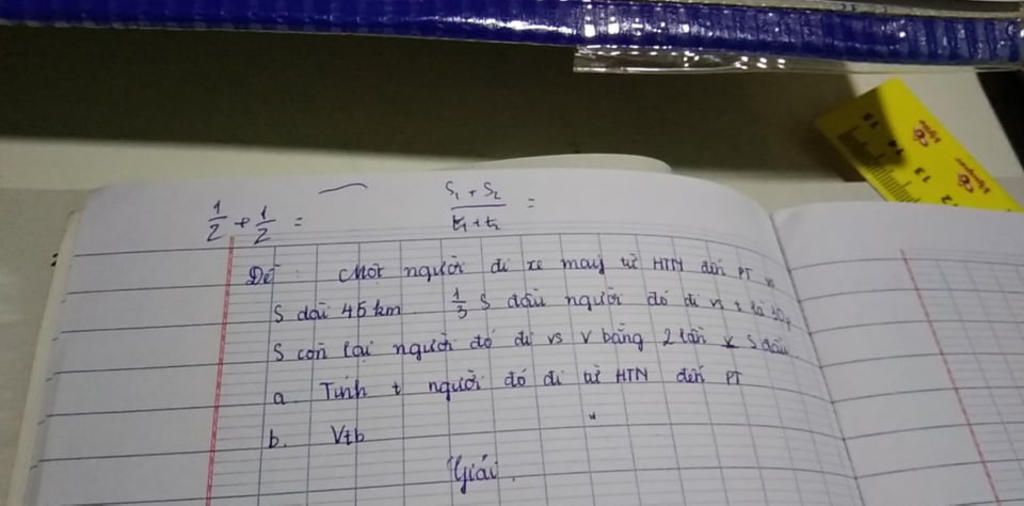 1/2 + 1/2 =
S₁ + S₂ / t₁ + t₂ =
Đề: Một người đi xe máy từ HTN đến PT vs
S dài 45 km. 1/3 S đầu người đó đi vs t là
S còn lại người đó đi vs v bằng 2 lần v S đầu.
a. Tính t người đó đi từ HTN đến PT
b. Vtb
Giải.
15
14
13